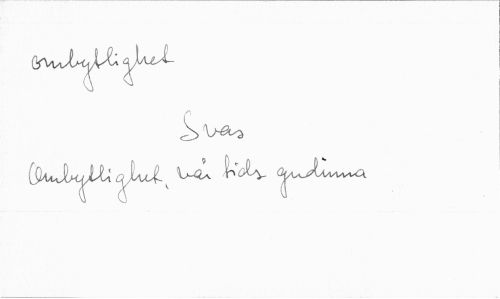 ombytlighet
Svas
Ombytlighet, vår tids gudinna